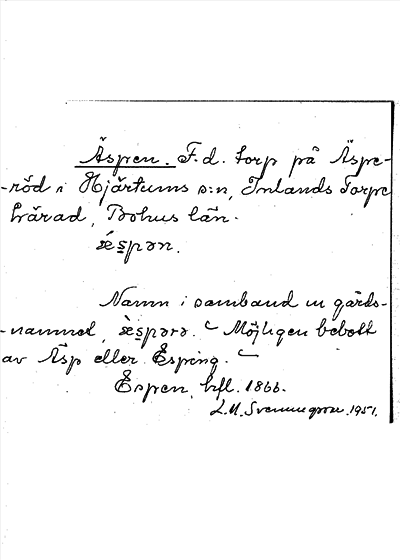 Äspen. F. d. torp på Äspe-
-röd i Hjärtums s:n, Inlands Torpe
härad, Bohus län.
ǽspən.
Namn i samband m gårds-
-namnet, ǽspərə. Möjligen bebott
av Äsp eller Esping.
Espen, hfl. 1866.
L. M. Svenungsson. 1951.